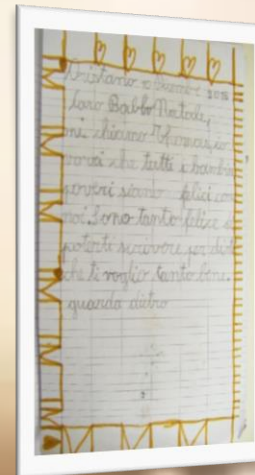 Caro Babbo Natale,
mi chiamo Tommaso, io
vorrei che tutti i bambini
poveri siano felici come
noi. Sono tanto felice di
poterti scrivere per dirti
che ti voglio tanto bene.
guarda dietro